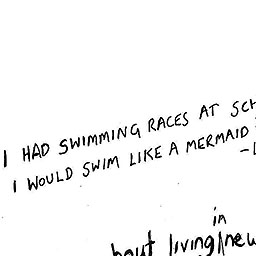 I HAD SWIMMING RACES AT SCH
I WOULD SWIM LIKE A MERMAID
in
bout living / new